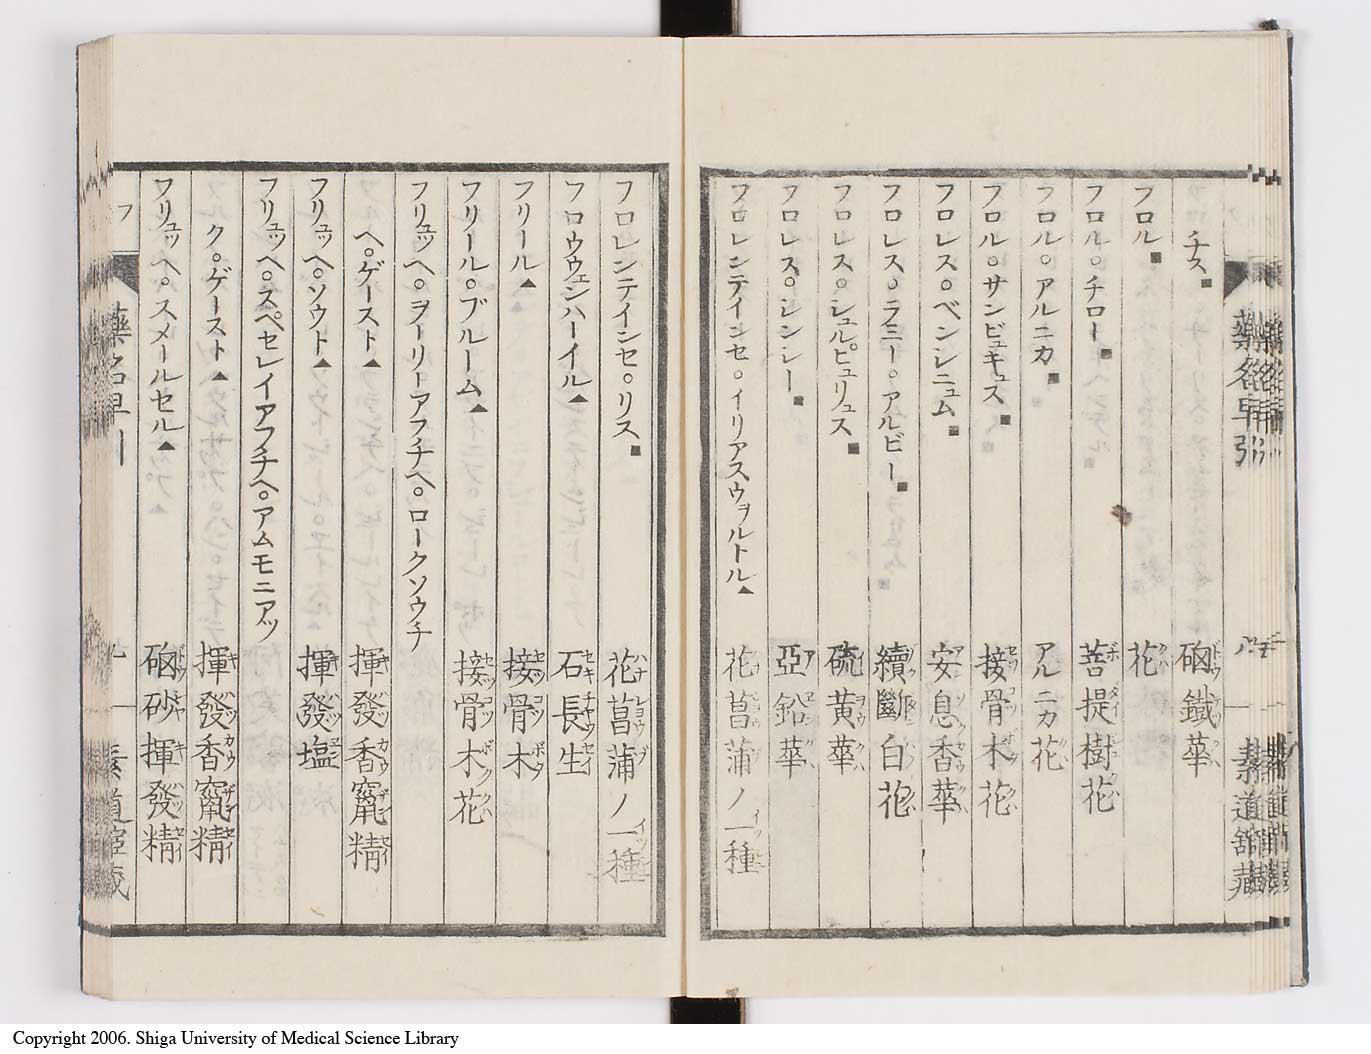 チス■ 硇鐵華
フロル■ 花
フロル○チロー■ 菩提樹花
フロル○アルニカ■ アルニカ花
フロル○サンビュキュス■ 接骨木花
フロレス○ベンシニュム■ 安息香華
フロレス○ラミー○アルビー■ 續斷白花
フロレス○シュルピュリス■ 硫黄華
フロレス○シンシー■ 亞鉛華
フロレンテインセ○イリアスウヲルトル▲ 花菖蒲ノ一種
藥名早引
フロレンテインセ○リス■ 花菖蒲ノ一種
フロウウェンハーイル▲ 石長生
フリール▲ 接骨木
フリール○ブルーム▲ 接骨木花
フリュッヘ○ヲーリーアフチヘ○ロークソウチ
ヘ○ゲースト▲ 揮發香竄精
フリュッヘ○ソウト▲ 揮發塩
フリュッヘ○スペセレイアフチヘ○アムモニアッ
ク○ゲースト▲ 揮發香竄精
フリュッヘ○スメールセル▲ 硇砂揮發精
フ
Copyright 2006. Shiga University of Medical Science Library